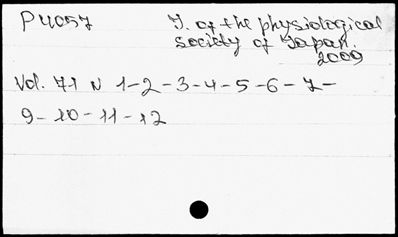 P4057 J. of the physiological
society of Japan.
2009
Vol. 71 N 1-2-3-4-5-6-7-
9-10-11-12